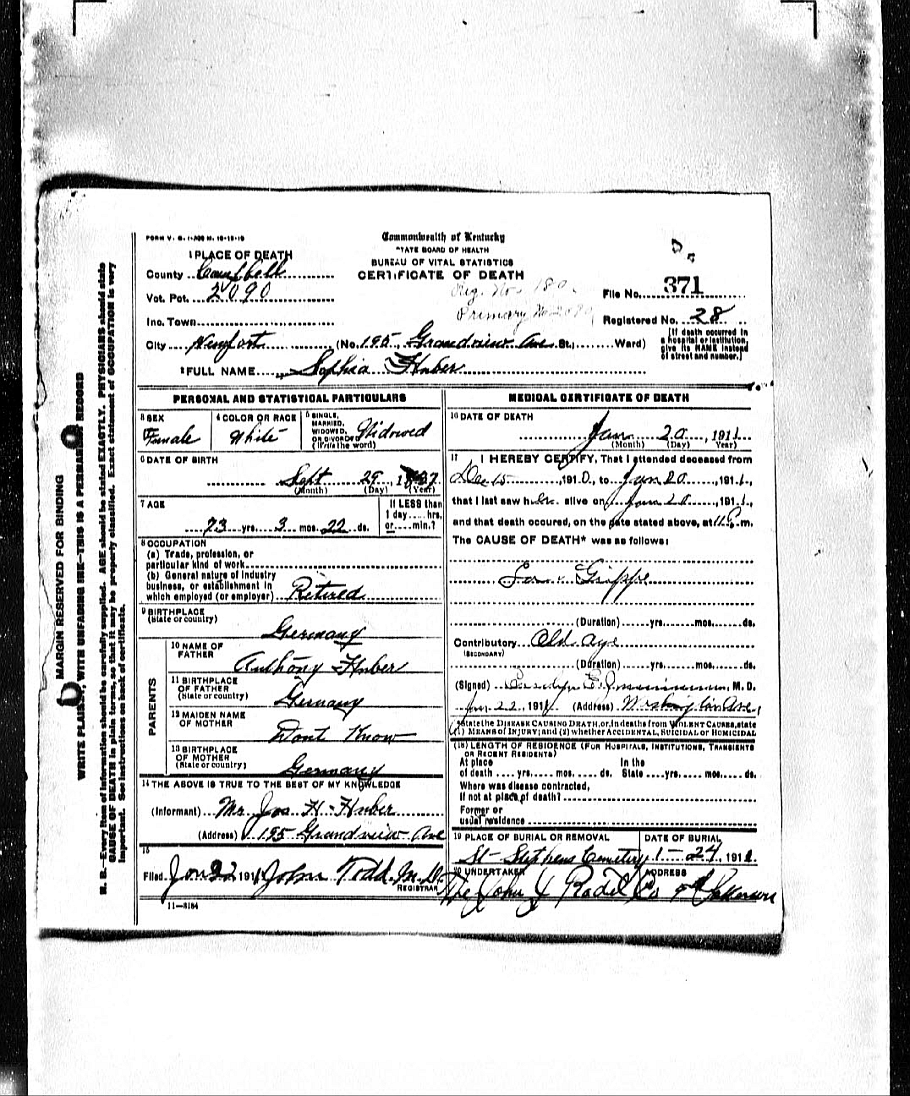 FORM V. S. 1-
Commonwealth of Kentucky
STATE BOARD OF HEALTH
BUREAU OF VITAL STATISTICS
CERTIFICATE OF DEATH
1 PLACE OF DEATH
County Campbell
Vot. Pct. 2090
Inc. Town
City Newport (No. 195 Grandview Ave St., Ward)
Reg. No. 180
Primary No. 2090
File No. 371
Registered No. 28
[If death occurred in a hospital or institution, give its NAME instead of street and number.]
2 FULL NAME Sophia Huber
PERSONAL AND STATISTICAL PARTICULARS
3 SEX Female
4 COLOR OR RACE White
5 SINGLE, MARRIED, WIDOWED, OR DIVORCED (Write the word) Widowed
6 DATE OF BIRTH
Sept 29 1837
(Month) (Day) (Year)
7 AGE
73 yrs. 3 mos. 22 ds.
If LESS than 1 day.... hrs. or.... min.?
8 OCCUPATION
(a) Trade, profession, or particular kind of work
(b) General nature of industry business, or establishment in which employed (or employer) Retired
9 BIRTHPLACE
(State or country) Germany
PARENTS
10 NAME OF FATHER Anthony Huber
11 BIRTHPLACE OF FATHER (State or country) Germany
12 MAIDEN NAME OF MOTHER Dont Know
13 BIRTHPLACE OF MOTHER (State or country) Germany
14 THE ABOVE IS TRUE TO THE BEST OF MY KNOWLEDGE
(Informant) Mr Jos H Huber
(Address) 195 Grandview Ave
15
Filed Jan 22 191 John Todd M.D.
REGISTRAR
11-3184
MEDICAL CERTIFICATE OF DEATH
16 DATE OF DEATH
Jan 20, 1911
(Month) (Day) (Year)
17 I HEREBY CERTIFY, That I attended deceased from
Dec 15, 1910, to Jan 20, 1911,
that I last saw her alive on Jan 20, 1911,
and that death occured, on the date stated above, at 11 P.m.
The CAUSE OF DEATH* was as follows:
La Grippe
(Duration) yrs. mos. ds.
Contributory Old Age
(SECONDARY)
(Duration) yrs. mos. ds.
(Signed) , M. D.
Jan 22, 1911 (Address) Washington Ave
*State the DISEASE CAUSING DEATH, or, in deaths from VIOLENT CAUSES, state (1) MEANS OF INJURY; and (2) whether ACCIDENTAL, SUICIDAL or HOMICIDAL
(18) LENGTH OF RESIDENCE (FOR HOSPITALS, INSTITUTIONS, TRANSIENTS OR RECENT RESIDENTS)
At place of death .... yrs. .... mos. .... ds. In the State .... yrs. .... mos. .... ds.
Where was disease contracted, If not at place of death?
Former or usual residence
19 PLACE OF BURIAL OR REMOVAL
St Stephens Cemetery
DATE OF BURIAL
1-24, 1911
20 UNDERTAKER
The John J Radel Co
ADDRESS
MARGIN RESERVED FOR BINDING
WRITE PLAINLY, WITH UNFADING INK—THIS IS A PERMANENT RECORD
N. B.—Every item of information should be carefully supplied. AGE should be stated EXACTLY. PHYSICIANS should state
CAUSE OF DEATH in plain terms, so that it may be properly classified. Exact statement of OCCUPATION is very
important. See instructions on back of certificate.